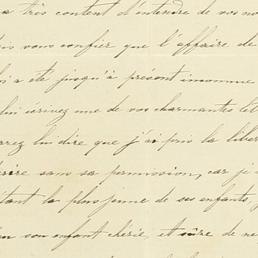 a très content d'entendre de vos no
us vous confier que l'affaire de
i a été jusqu'à présent
lui écrivez une de vos charmantes let
rez lui dire que j'ai pris la liber
rire sans sa permission, car je
étant la plus jeune de ses enfants, j
son enfant chérie, et sûre de ne